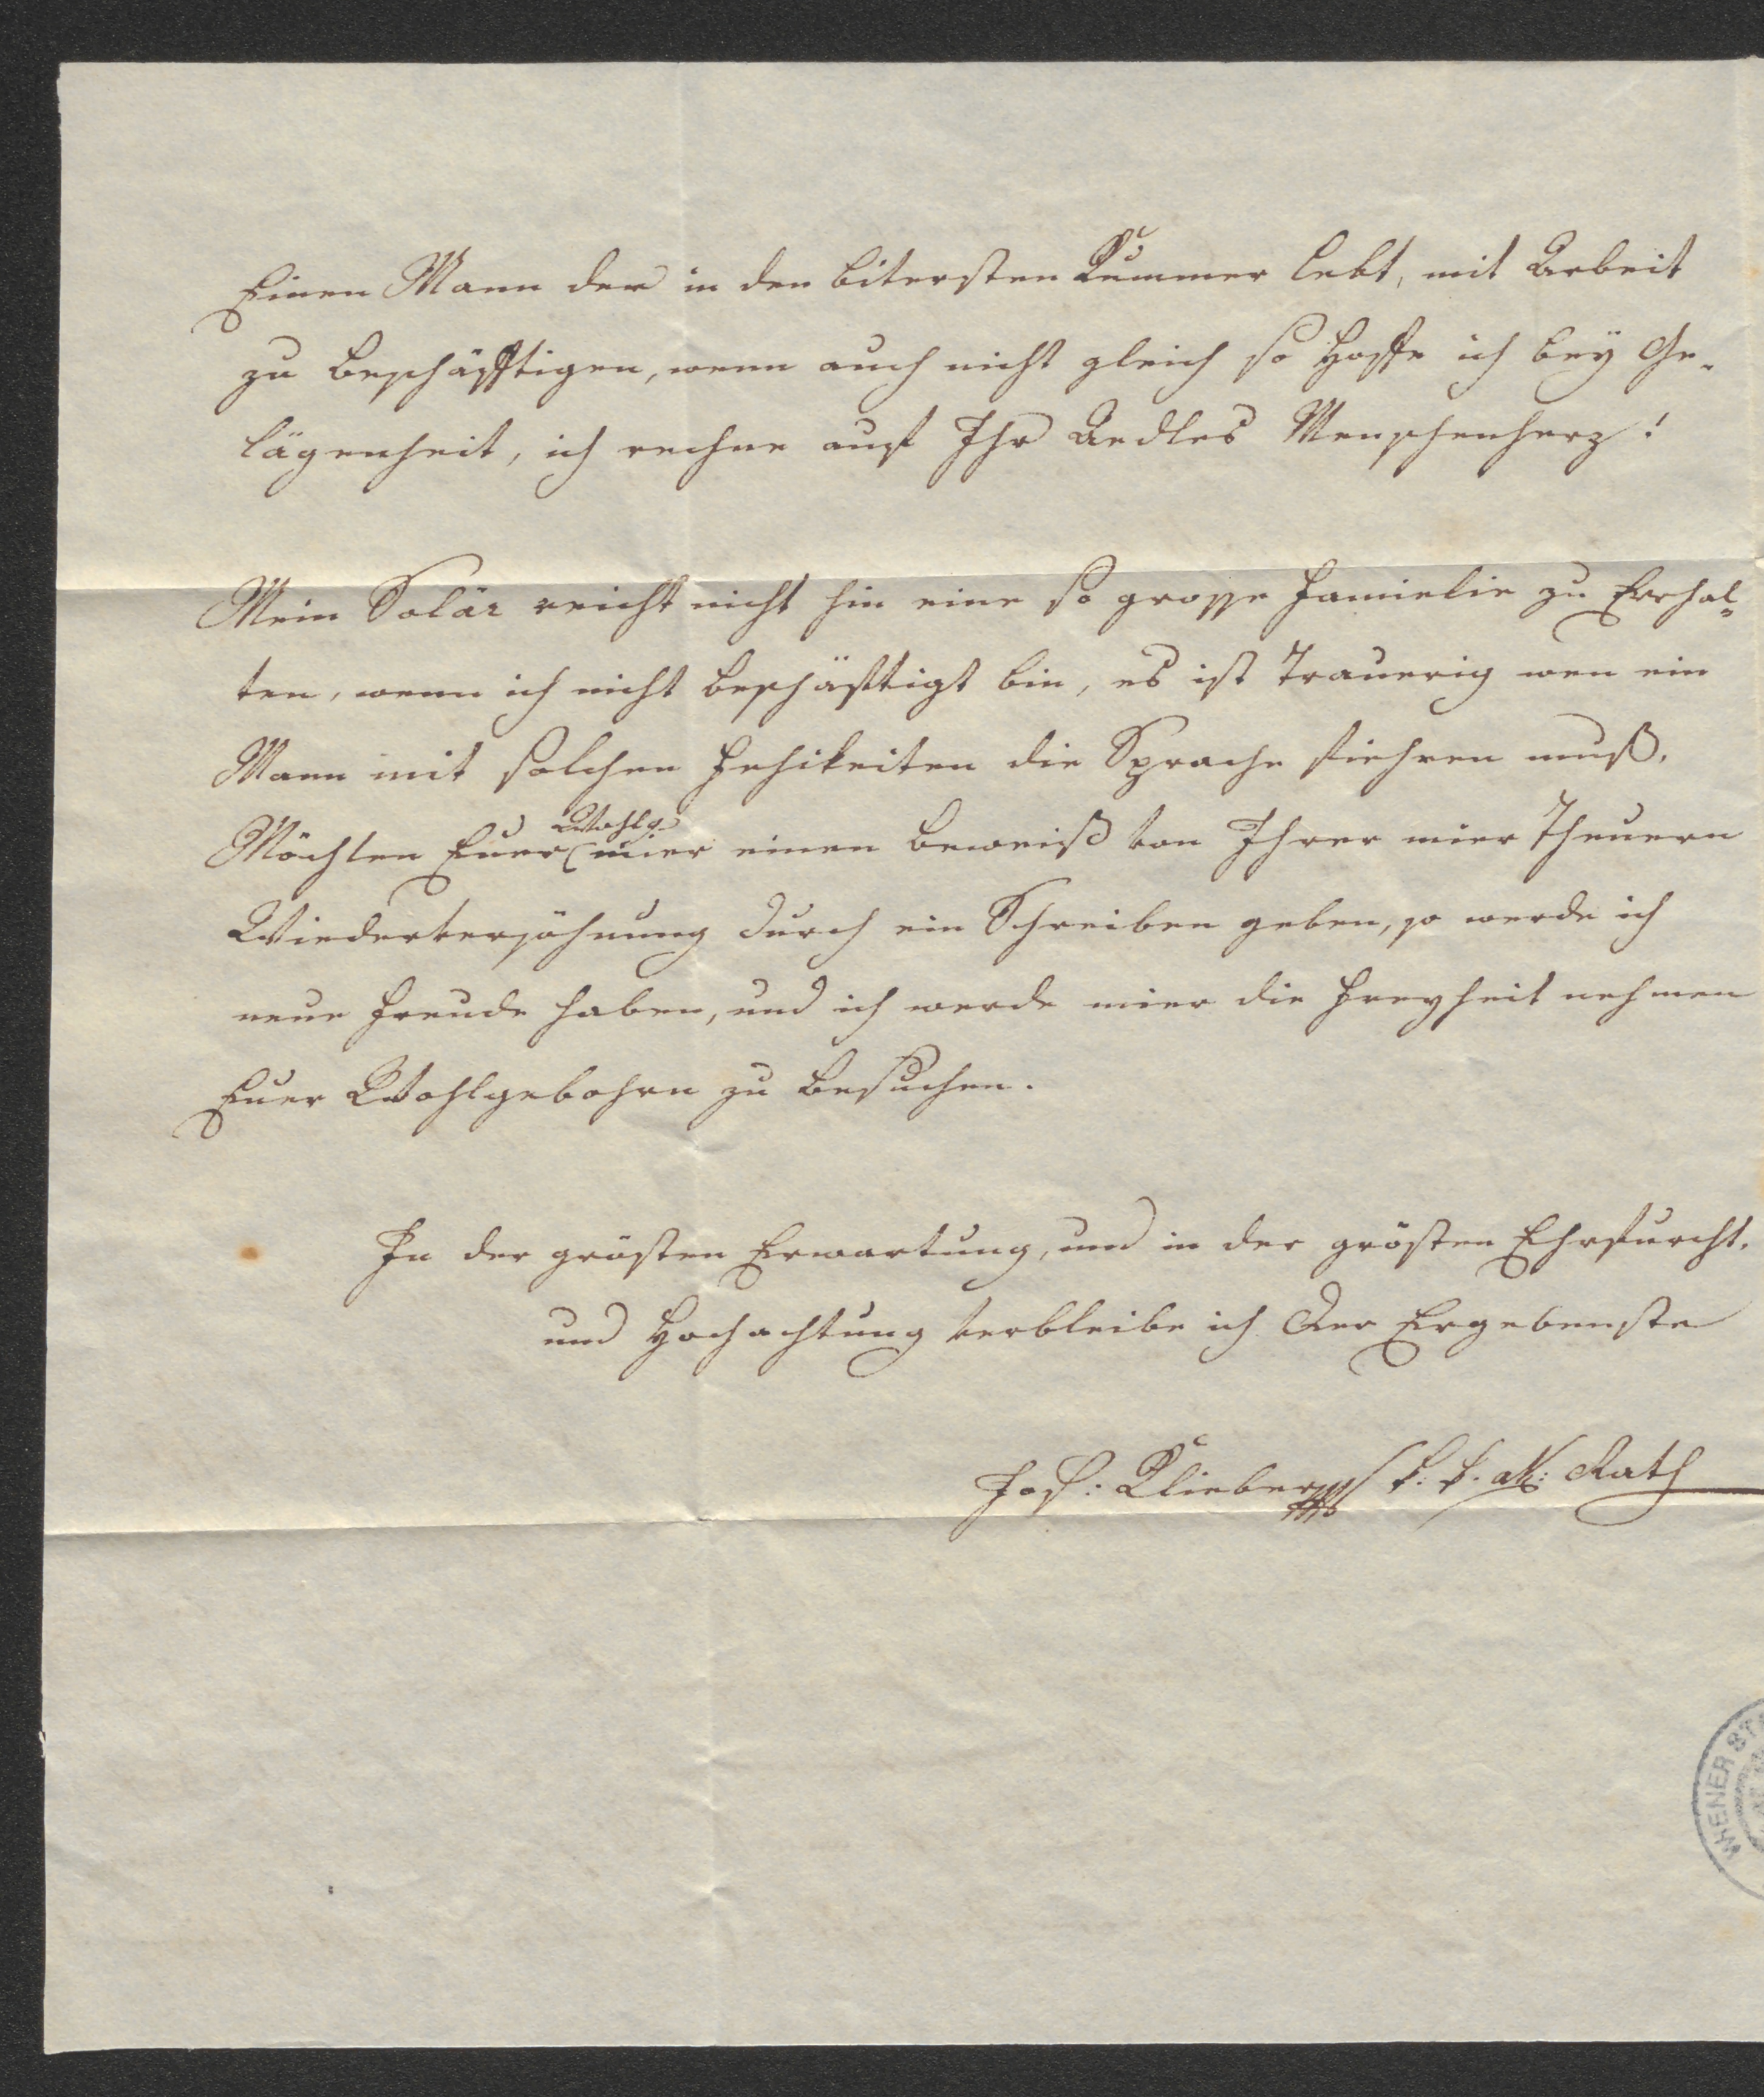 Einen Mann der in den bitersten Kummer lebt, mit Arbeit
zu beschäfftigen, wenn auch nicht gleich so hoffe ich bey Ge-
lägenheit, ich rechne auf Ihr Aedles Menschenherz!
Mein Solär reicht nicht hin eine so grosse Famielie zu Erhal-
ten, wenn ich nicht beschäftigt bin, es ist Trauerig wen ein
Mann mit solchen Fehikeiten die Sprache fiehren muß.
Wohlg.
Möchten Euer mier einen beweiß von Ihrer mier Theuern
Wiederversöhnung durch ein Schreiben geben, so werde ich
neue Freude haben, und ich werde mier die Freyheit nehmen
Euer Wohlgebohrn zu besuchen.
In der grösten Erwartung, und in der grösten Ehrfurcht,
und Hochachtung verbleibe ich Der Ergebenste
Jos: Klieber k. k. ak: Rath
WIENER ST